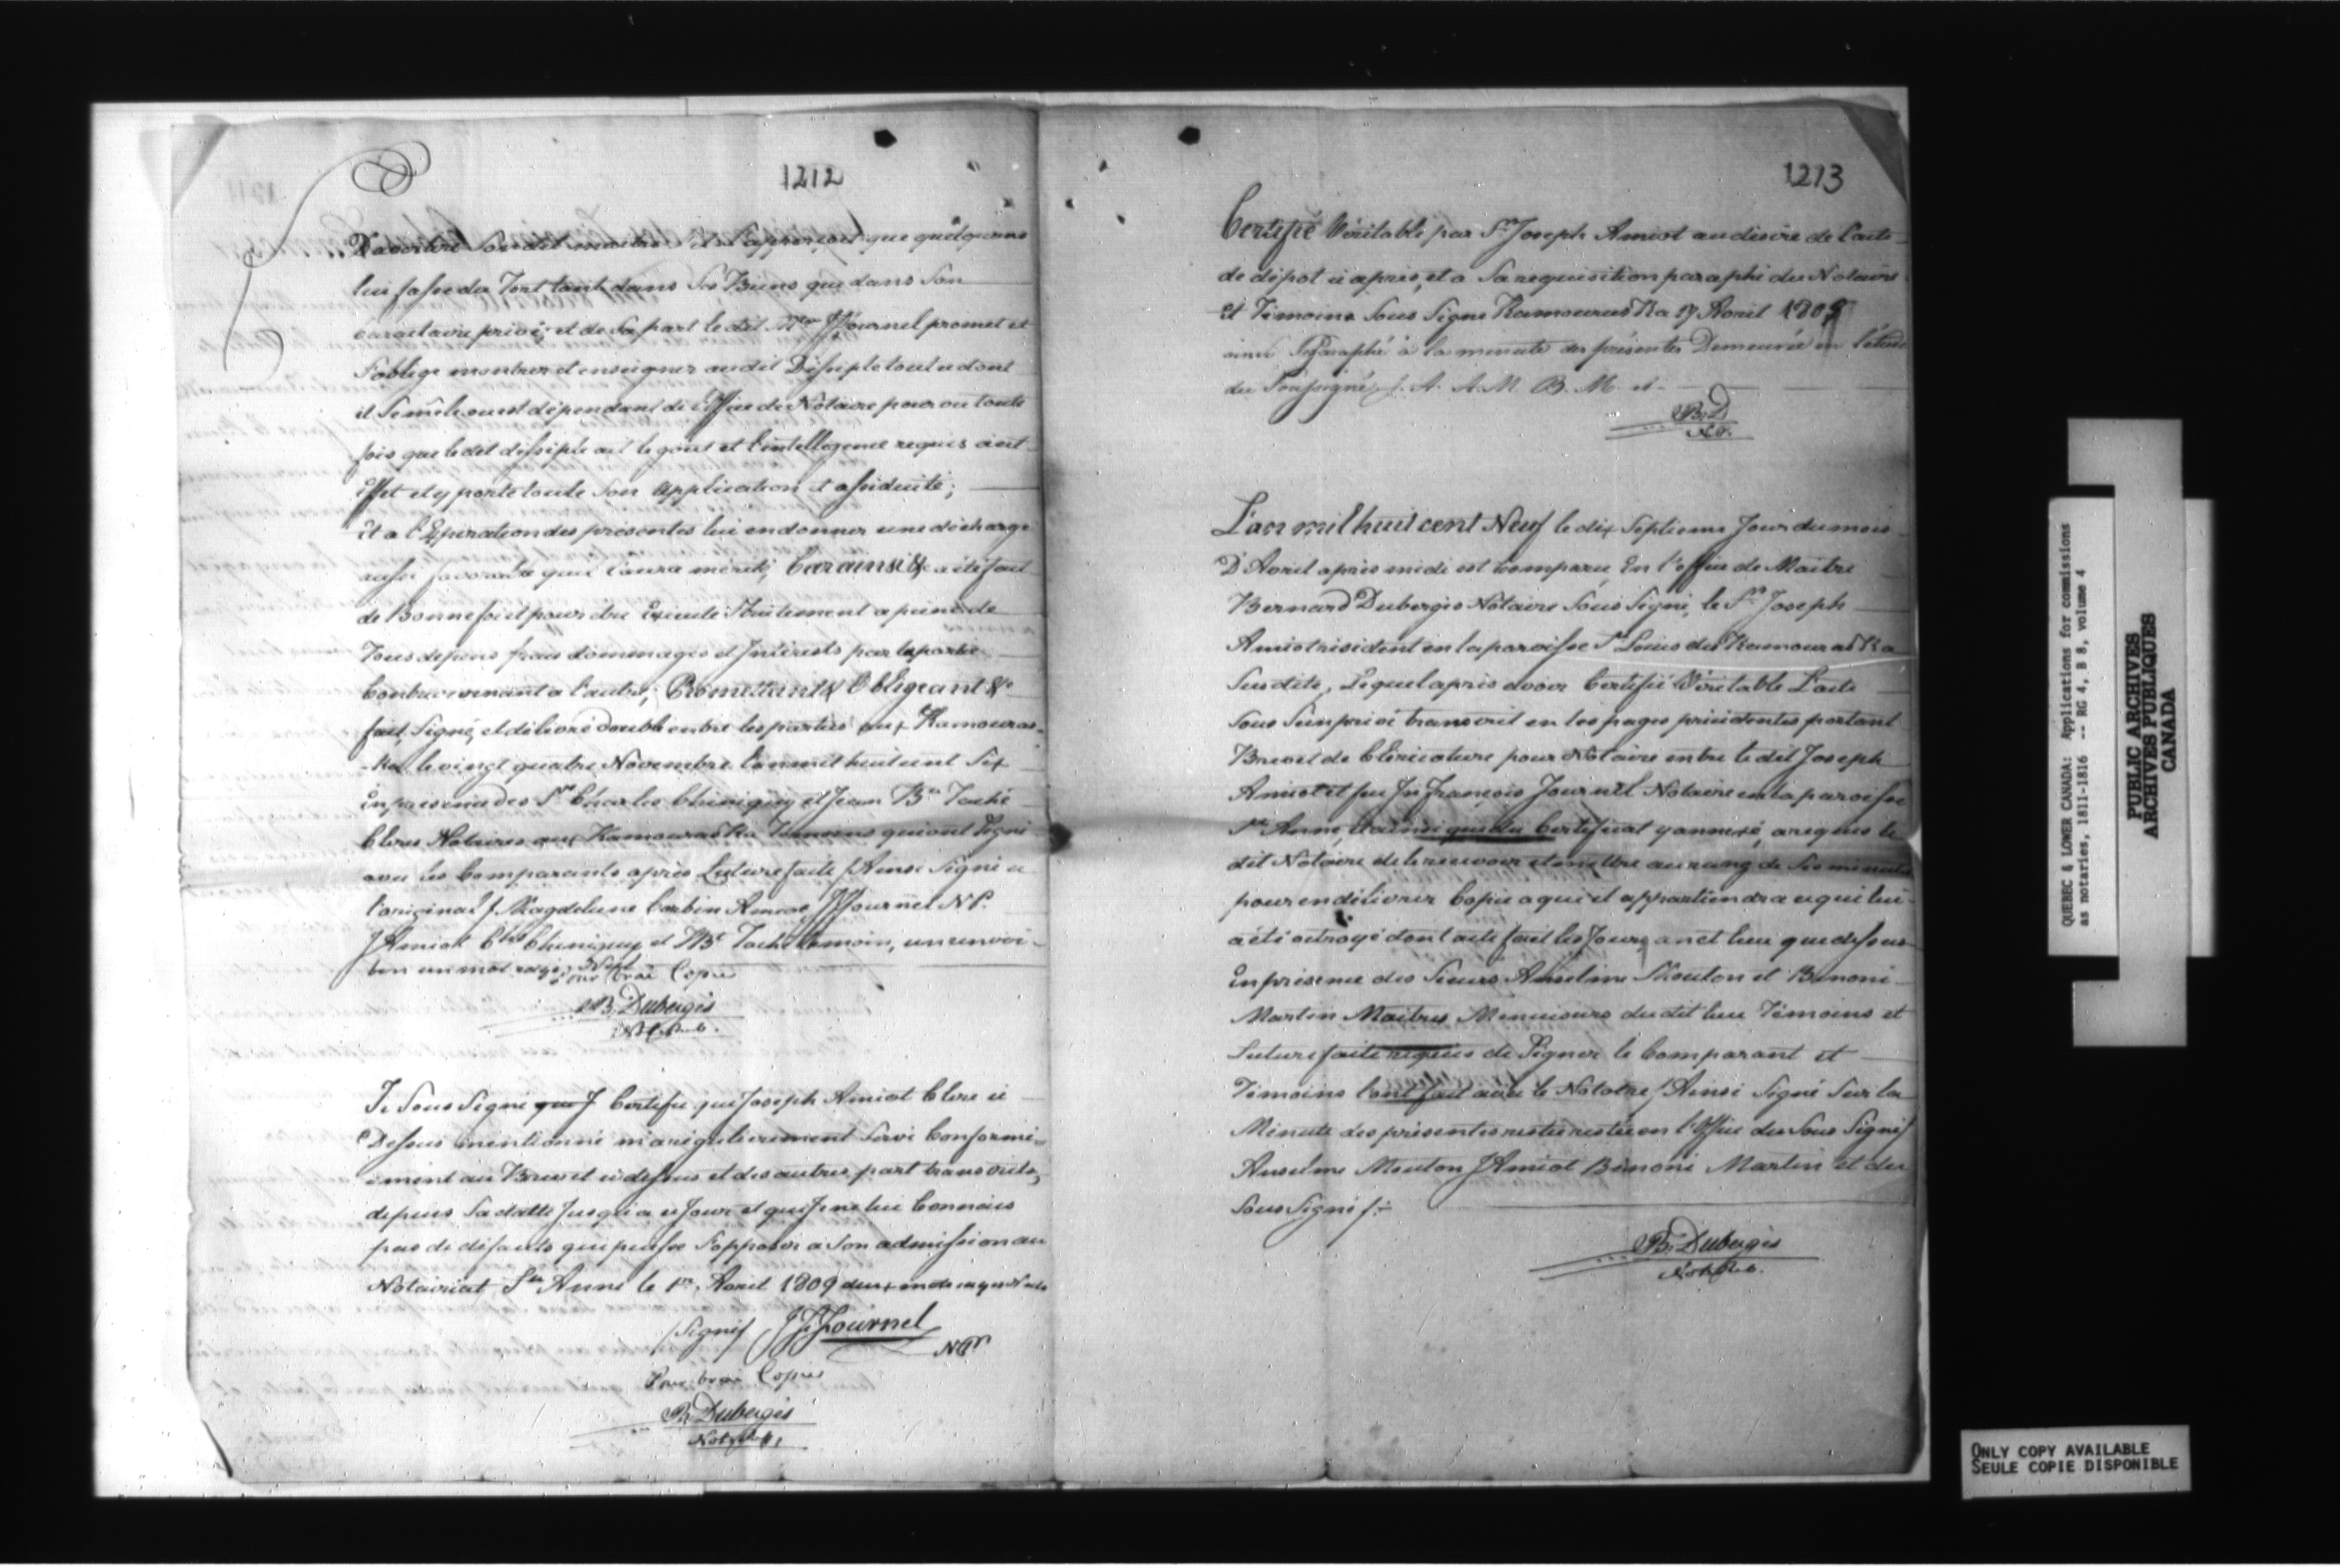 1212
D'avertir son dit maitre s'il s'apperçoit que quelquns
lui fasse du Tort tant dans Ses Biens que dans Son
caractaire privé; et de Sa part le dit Mtre JFournel promet et
s'oblige montrer et enseigner audit Désiple tout ce dont
il Se mêle ou est dépendant de l'office de Notaire pour ou toute
fois que le dit désiple ait le gout et l'intelligence requis a cet
Effet et y porte toute Son Application et assiduité;
Et a l'Expiration des présentes lui en donner une décharge
aussi favorable qu'il l'aura mérité; Car ainsi &c a été fait
de Bonne foi et pour être Exécuté Strictement a peine de
Tous depens frais dommages et Intérests par la partie
Contrevenant a l'autre; Promettant & Obligeant &c
fait, Signé, et délivré double entre les parties aux Kamouras-
-ka le vingt quatre Novembre l'an mil huit cent Six
En présence des Sr Charles Chiniquy et Jean Bte Taché
Clercs Notaires aux Kamouraska Temoins qui ont Signé
avec les Comparants après Lecture faite /Ainsi Signé a
l'original/ Magdeleine Corbin Amiot JFournel N.P.
JAmiot Chs Chiniquy et JBt Taché temoin, un renvoi
bon un mot rayé Nul
Pour Vrai Copie
B. Dubergès
Not. Pub.
Je Sous Signé que J Certifie que Joseph Amiot Clerc ci
Dessus mentionné m'a régulierement Servi Conformé-
-ment au Brevet ci dessus et des autres part transcrits,
depuis Sa datte Jusqu'a ce Jour et que Je ne lui Connais
pas de défauts qui puisse S'opposer a Son admission au
Notairiat Ste Anne le 1er. Avril 1809 deux mots rayés Nuls
/Signé/ JFFournel
NP
Pour vrai Copie
B. Dubergès
Not. Pub.
1213
Certifié Véritable par Sr Joseph Amiot au désire de l'acte
de dépot ci après, et a Sa requisition paraphé du Notaire
et Témoins Sous Signé Kamouraska 17 Avril 1809
ainsi Paraphé à la minute des présentes Demeurée en l'étude
du Soussigné /. J. A. A. M. B. M. et
B. D
N.P.
L'an mil huit cent Neuf le dix Septieme Jour du mois
D'Avril après midi est Comparu En l'office de Maitre
Bernard Dubergès Notaire Sous Signé, le Sr. Joseph
Amiot résident en la paroisse St Louis des Kamouraska
Susdite, Lequel après avoir Certifié Véritable L'acte
Sous Seinprivé transcrit en les pages précédentes portant
Brevet de Cléricature pour Notaire entre le dit Joseph
Amiot et feu Jn François Journel Notaire en la paroisse
Ste Anne, ainsi que du Certificat y annexé, a requis le
dit Notaire de le recevoir et mettre au rang de Ses minutes
pour en délivrer Copie a qui il appartiendra ce qui lui
a été octroyé dont acte fait les Jour, an et lieu que dessus
En présence des Sieurs Anselme Mouton et Benoni
Martin Maitres Menuisiers du dit lieu Témoins et
Lecture faite requis de Signer le Comparant et
Témoins l'ont fait avec le Notaire /Ainsi Signé Sur la
Minute des présentes restée restée en l'Office du Sous Signé/
Anselme Mouton JAmiot Benoni Martin et du
Sous Signé/:
B. Dubergès
Not. Pub.
QUEBEC & LOWER CANADA: Applications for commissions
as notaries, 1811-1816 -- RG 4, B 8, volume 4
PUBLIC ARCHIVES
ARCHIVES PUBLIQUES
CANADA
ONLY COPY AVAILABLE
SEULE COPIE DISPONIBLE